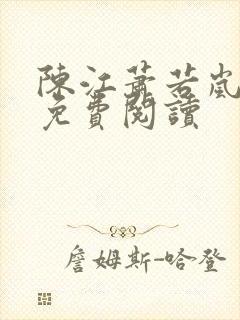 陳江蕭若嵐
免費閱讀
詹姆斯-哈登